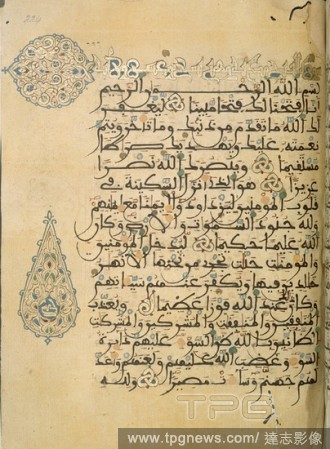 بسم الله الرحمن الرحيم
انا فتحنا لك فتحا مبينا ليغفر
لك الله ما تقدم من ذنبك وما تاخر ويتم
نعمته عليك ويهديك صرطا
مستقيما وينصرك الله نصرا
عزيزا هو الذي انزل السكينة في
قلوب المومنين ليزدادوا ايمنا مع ايمنهم
ولله جنود السموت والارض وكان
الله عليما حكيما ليدخل المومنين
والمومنت جنت تجري من تحتها الانهر
خلدين فيها ويكفر عنهم سياتهم
وكان ذلك عند الله فوزا عظيما ويعذب
المنفقين والمنفقت والمشركين والمشركت
الظانين بالله ظن السوء عليهم دايرة
السوء وغضب الله عليهم ولعنهم واعد
لهم جهنم وساءت مصيرا ولله
TPG
www.tpgnews.com / 達志影像